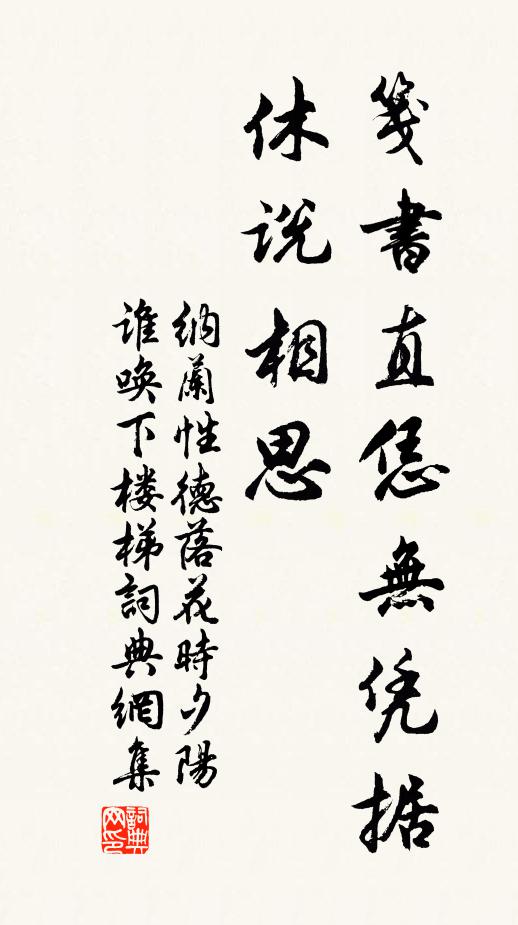 箋書直恁無凭据
休説相思
納蘭性德落花時夕陽
谁唤下楼梯詞典網集
詞典
网印